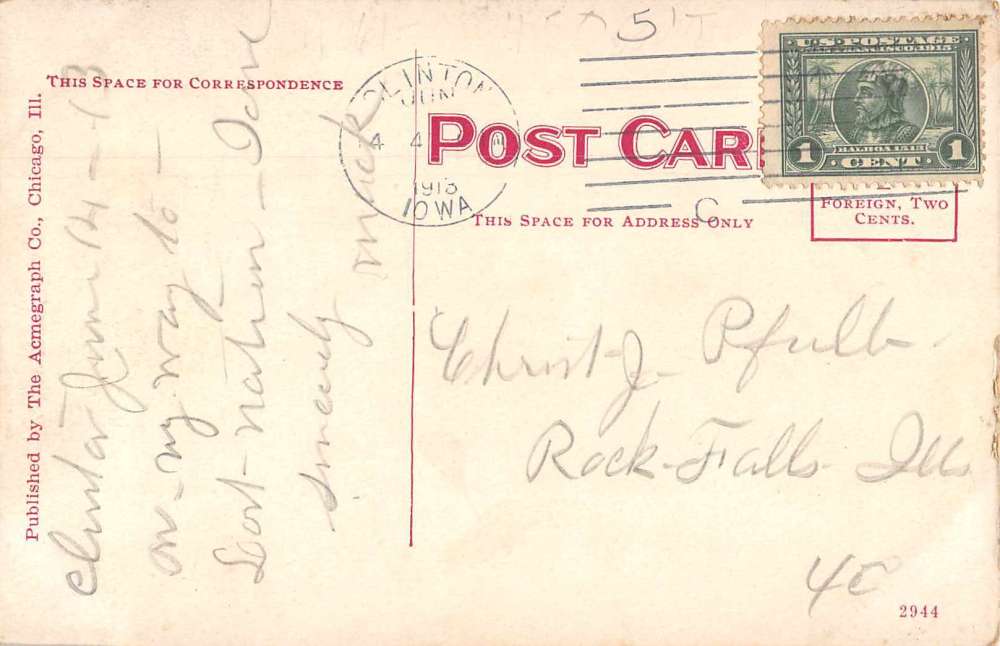 5
U.S. POSTAGE
SAN FRANCISCO, 1915
BALBOA 1513
1 CENT 1
CLINTON
JUN
4 4
1913
IOWA
THIS SPACE FOR CORRESPONDENCE
POST CAR
THIS SPACE FOR ADDRESS ONLY
FOREIGN, TWO
CENTS.
C
Published by The Acmegraph Co., Chicago, Ill.
Clinton June 14-13
on-my way to-
Lost-nation-Iow
Sincerely
Christ-J- Pfulb-
Rock-Falls-Ills
40
2944